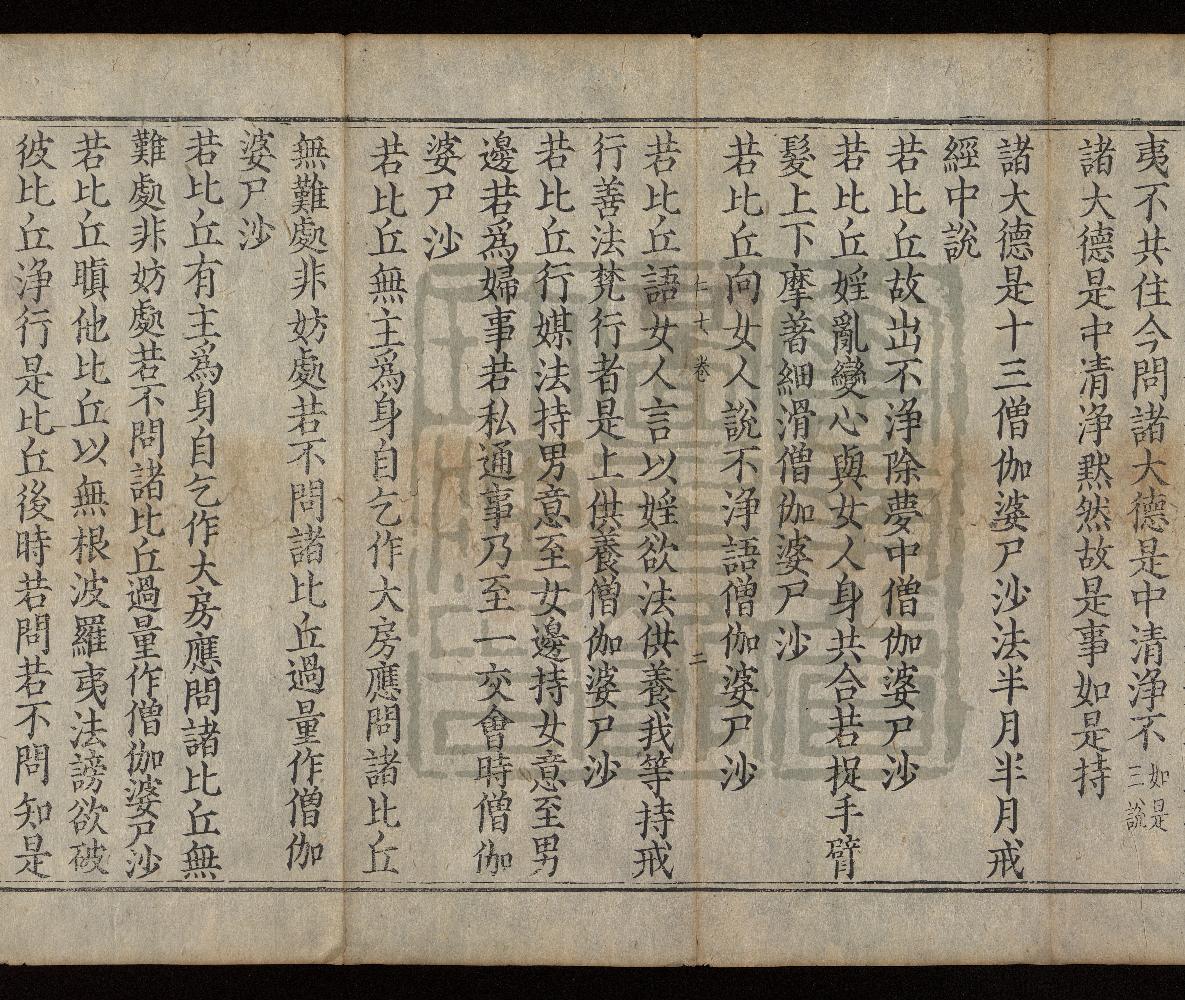 夷不共住今問諸大德是中清淨不如是三說
諸大德是中清淨默然故是事如是持
諸大德是十三僧伽婆尸沙法半月半月戒
經中說
若比丘故出不淨除夢中僧伽婆尸沙
若比丘婬亂變心與女人身共合若捉手臂
髮上下摩著細滑僧伽婆尸沙
若比丘向女人說不淨語僧伽婆尸沙
卷
二
若比丘語女人言以婬欲法供養我等持戒
行善法梵行者是上供養僧伽婆尸沙
若比丘行媒法持男意至女邊持女意至男
邊若為婦事若私通事乃至一交會時僧伽
婆尸沙
若比丘無主為身自乞作大房應問諸比丘
無難處非妨處若不問諸比丘過量作僧伽
婆尸沙
若比丘有主為身自乞作大房應問諸比丘無
難處非妨處若不問諸比丘過量作僧伽婆尸沙
若比丘瞋他比丘以無根波羅夷法謗欲破
彼比丘淨行是比丘後時若問若不問知是